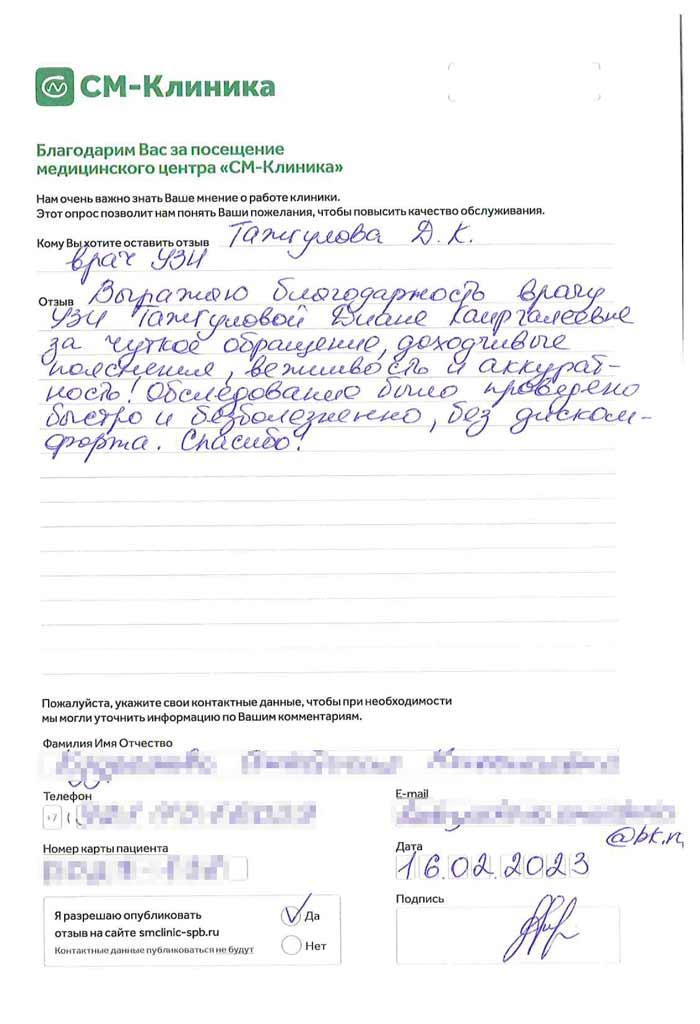 СМ-Клиника
Благодарим Вас за посещение
медицинского центра «СМ-Клиника»
Нам очень важно знать Ваше мнение о работе клиники.
Этот опрос позволит нам понять Ваши пожелания, чтобы повысить качество обслуживания.
Кому Вы хотите оставить отзыв Тажгулова Д. К.
врач УЗИ
Отзыв Выражаю благодарность врачу
УЗИ Тажгуловой Диане Каиргалеевне
за чуткое обращение, доходчивые
пояснения, вежливость и аккурат-
ность! Обследование было проведено
быстро и безболезненно, без диском-
форта. Спасибо!
Пожалуйста, укажите свои контактные данные, чтобы при необходимости
мы могли уточнить информацию по Вашим комментариям.
Фамилия Имя Отчество
Телефон E-mail
+7
@bk.ru
Номер карты пациента Дата
16.02.2023
Я разрешаю опубликовать
отзыв на сайте smclinic-spb.ru
Контактные данные публиковаться не будут
Да
Нет
Подпись